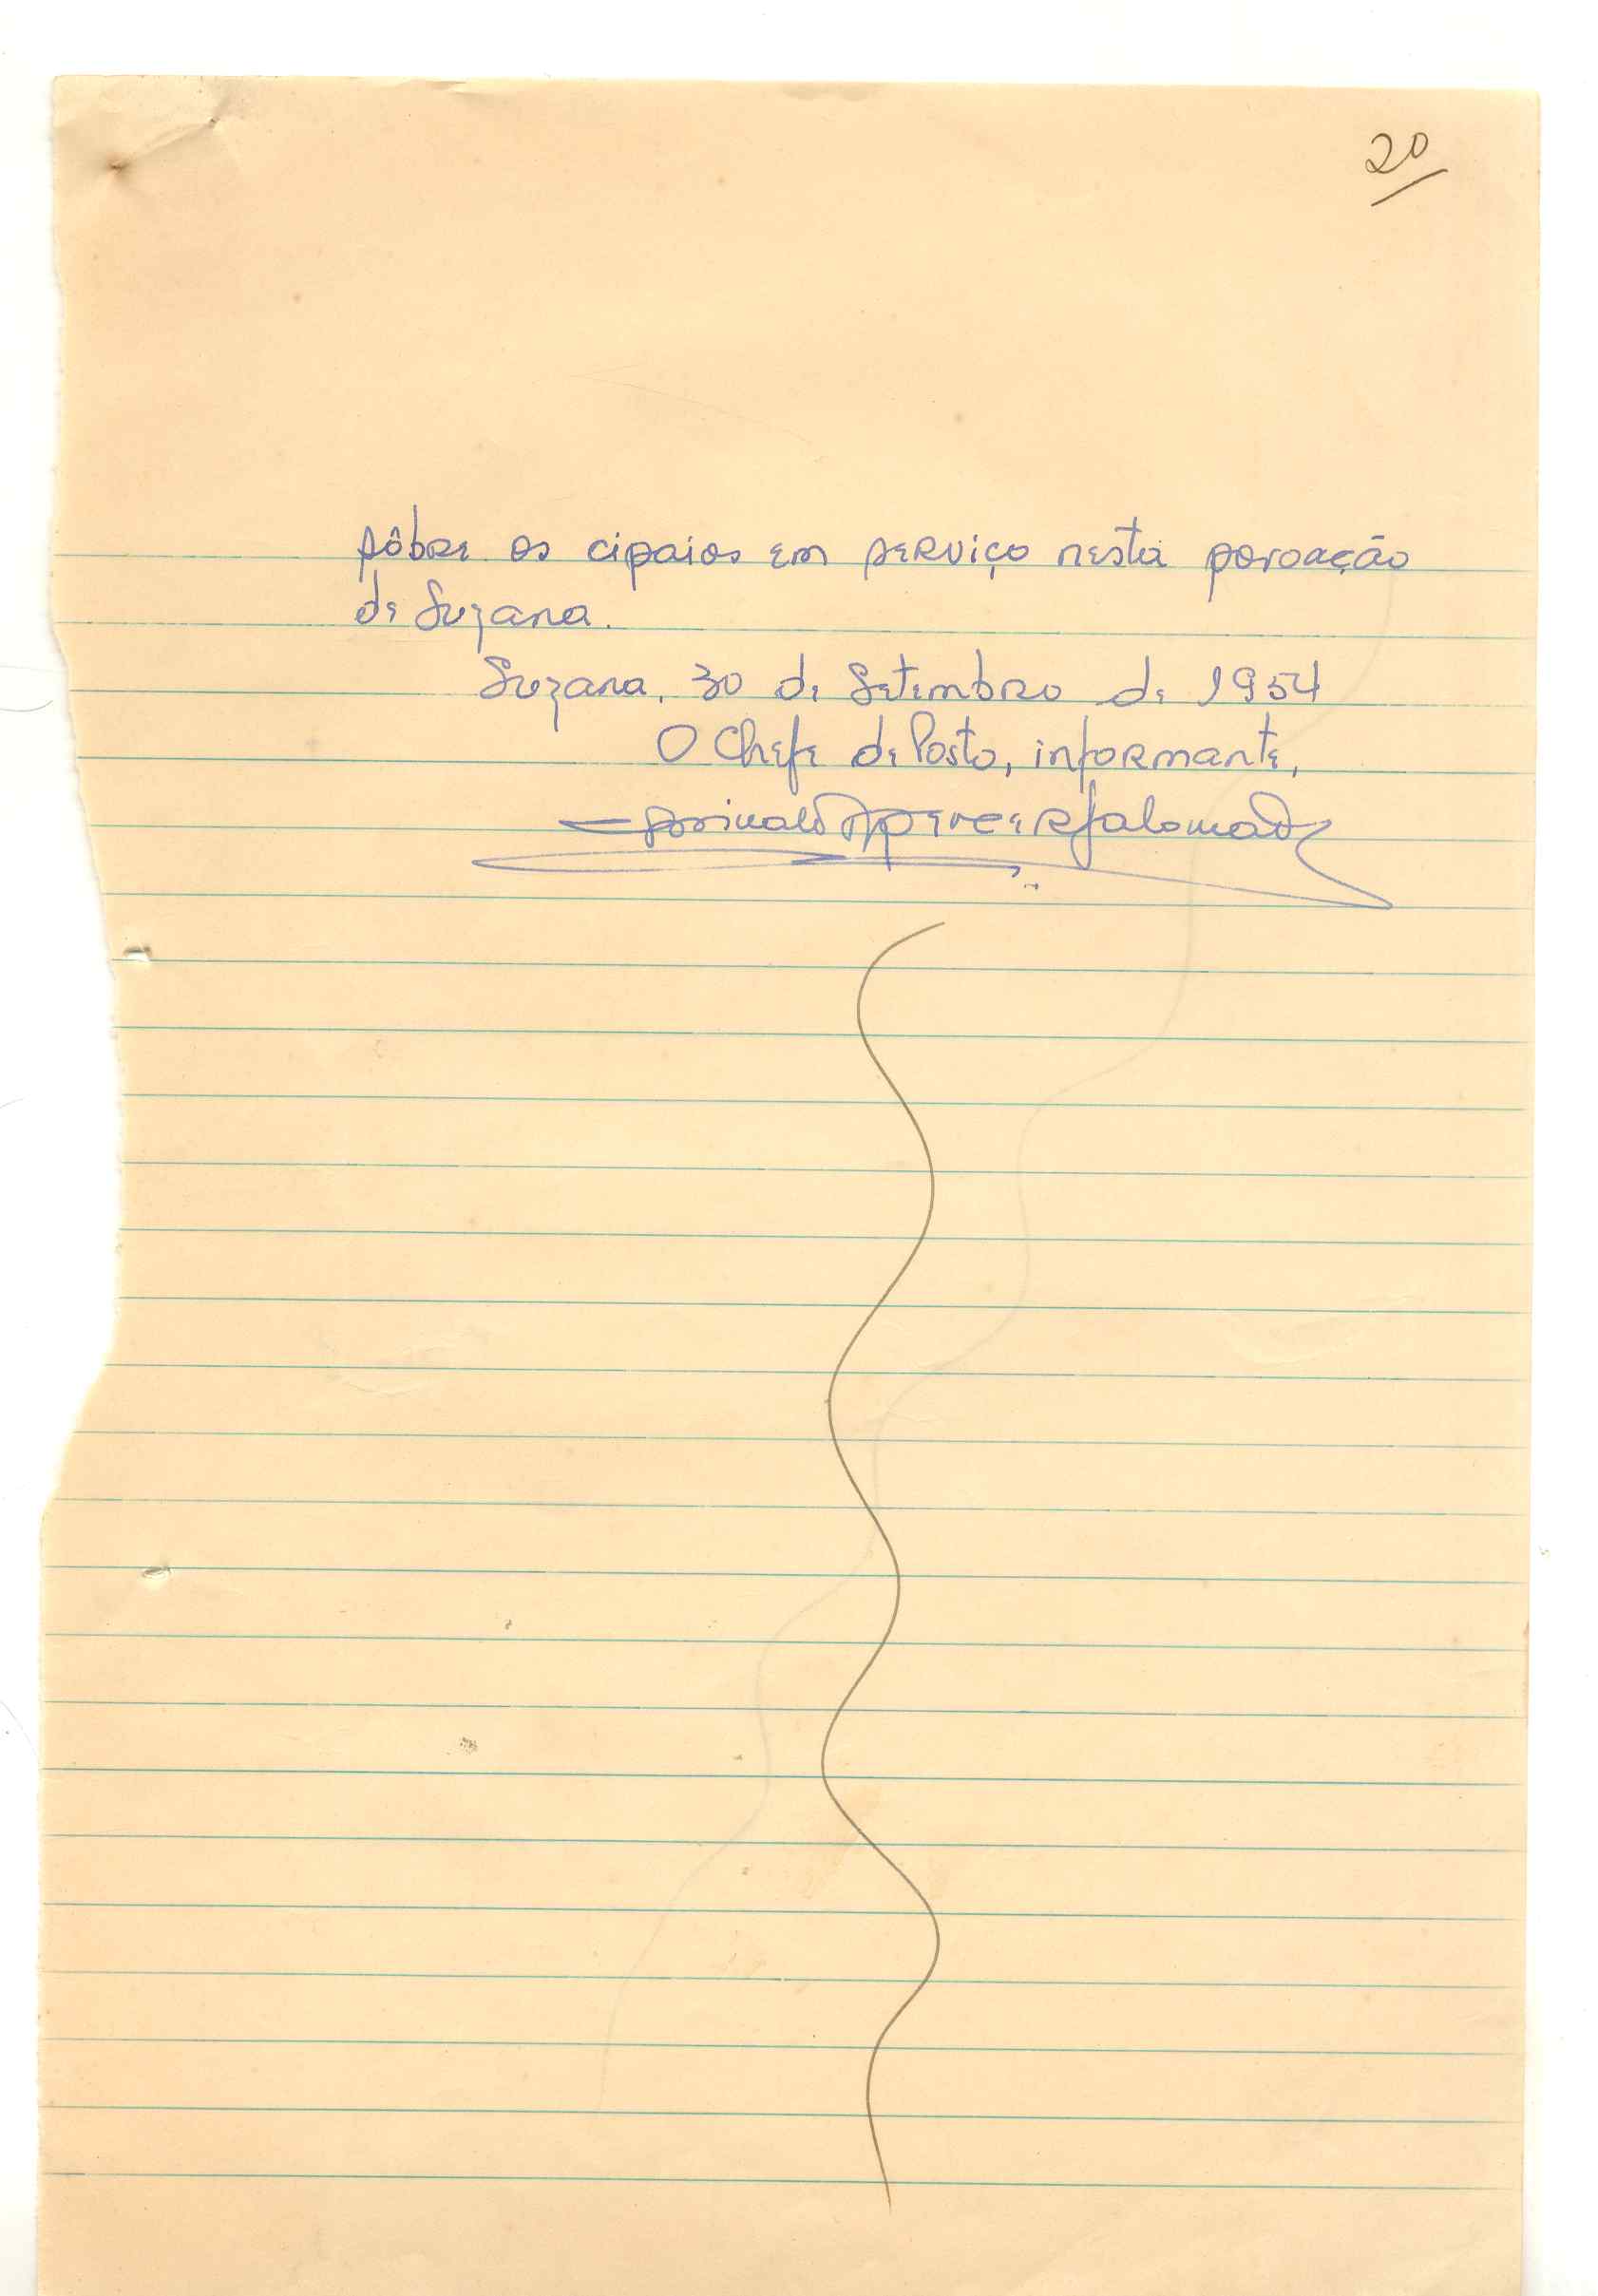 20
sôbre os cipaios em serviço nesta povoação
de Suzana.
Suzana, 30 de Setembro de 1954
O Chefe de Posto, informante,